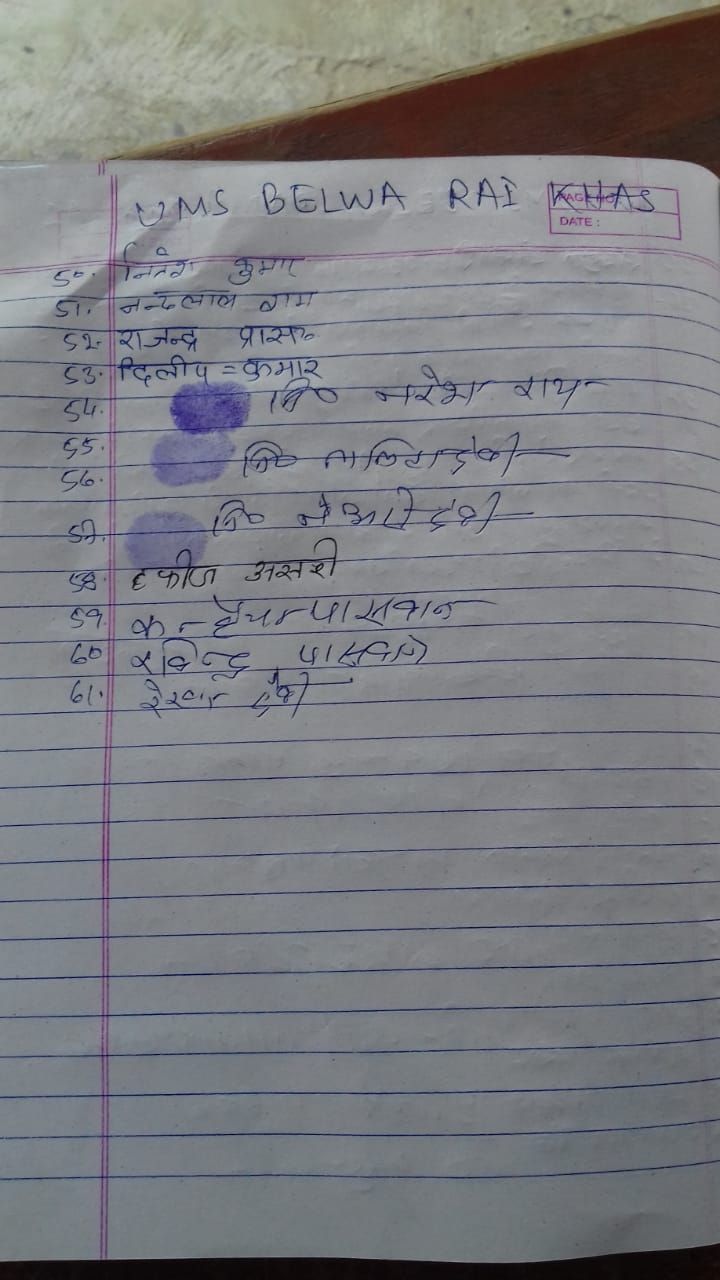 UMS BELWA RAI KHAS
DATE :
50. नितेश कुमार
51. नन्दलाल राम
52. राजेन्द्र प्रसाद
53. दिलीप = कुमार
54. नि० नरेश राय
55.
56. नि० ललिता देवी
57. नि० देवी
58. हफीज अंसारी
59. कन्हैया पासवान
60 रविन्द्र पासवान
61. रेखा देवी